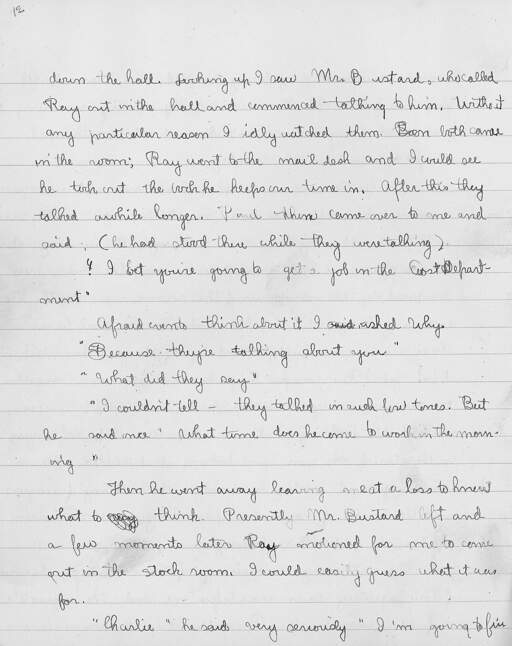 12
down the hall. Looking up I saw Mr. Bustard, who called
Ray out in the hall and commenced talking to him. Without
any particular reason I idly watched them. Soon both came
in the room; Ray went to the mail desk and I could see
he took out the book he keeps our time in. After this they
talked awhile longer. Paul then came over to me and
said; (he had stood there while they were talking)
" I bet you're going to get a job in the Cost Depart-
ment"
Afraid even to think about it I asked Why.
"Because they're talking about you"
"What did they say"
"I couldn't tell - they talked in such low tones. But
he said once " What time does he come to work in the morn-
ing "
Then he went away leaving me at a loss to know
what to think. Presently Mr. Bustard left and
a few moments later Ray motioned for me to come
out in the stock room. I could easily guess what it was
for.
"Charlie" he said very seriously " I'm going to